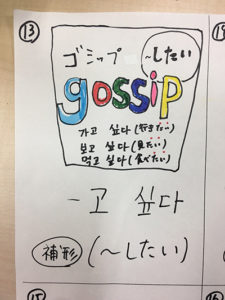 ⑬
ゴシップ
〜したい
gossip
가고 싶다 (行きたい)
보고 싶다 (見たい)
먹고 싶다 (食べたい)
ー고 싶다
補形 (〜したい)
⑮